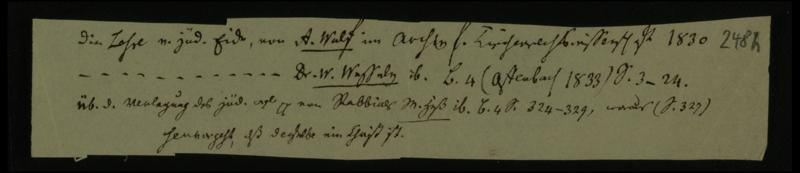 Die Lehre v. jüd. Eide, von A. Wolf im Archiv f. Kirchenrechtswissensch. 1830 248b
– – – – – – – – – – – – – Dr. W. Wessely ib. B. 4 (Offenbach 1833) S. 3–24.
üb. d. des jüd. von Rabbiner M. Heß ib. B. 4 S. 324–329, woraus (S. 327)
hervorgeht, daß derselbe ein Christ ist.